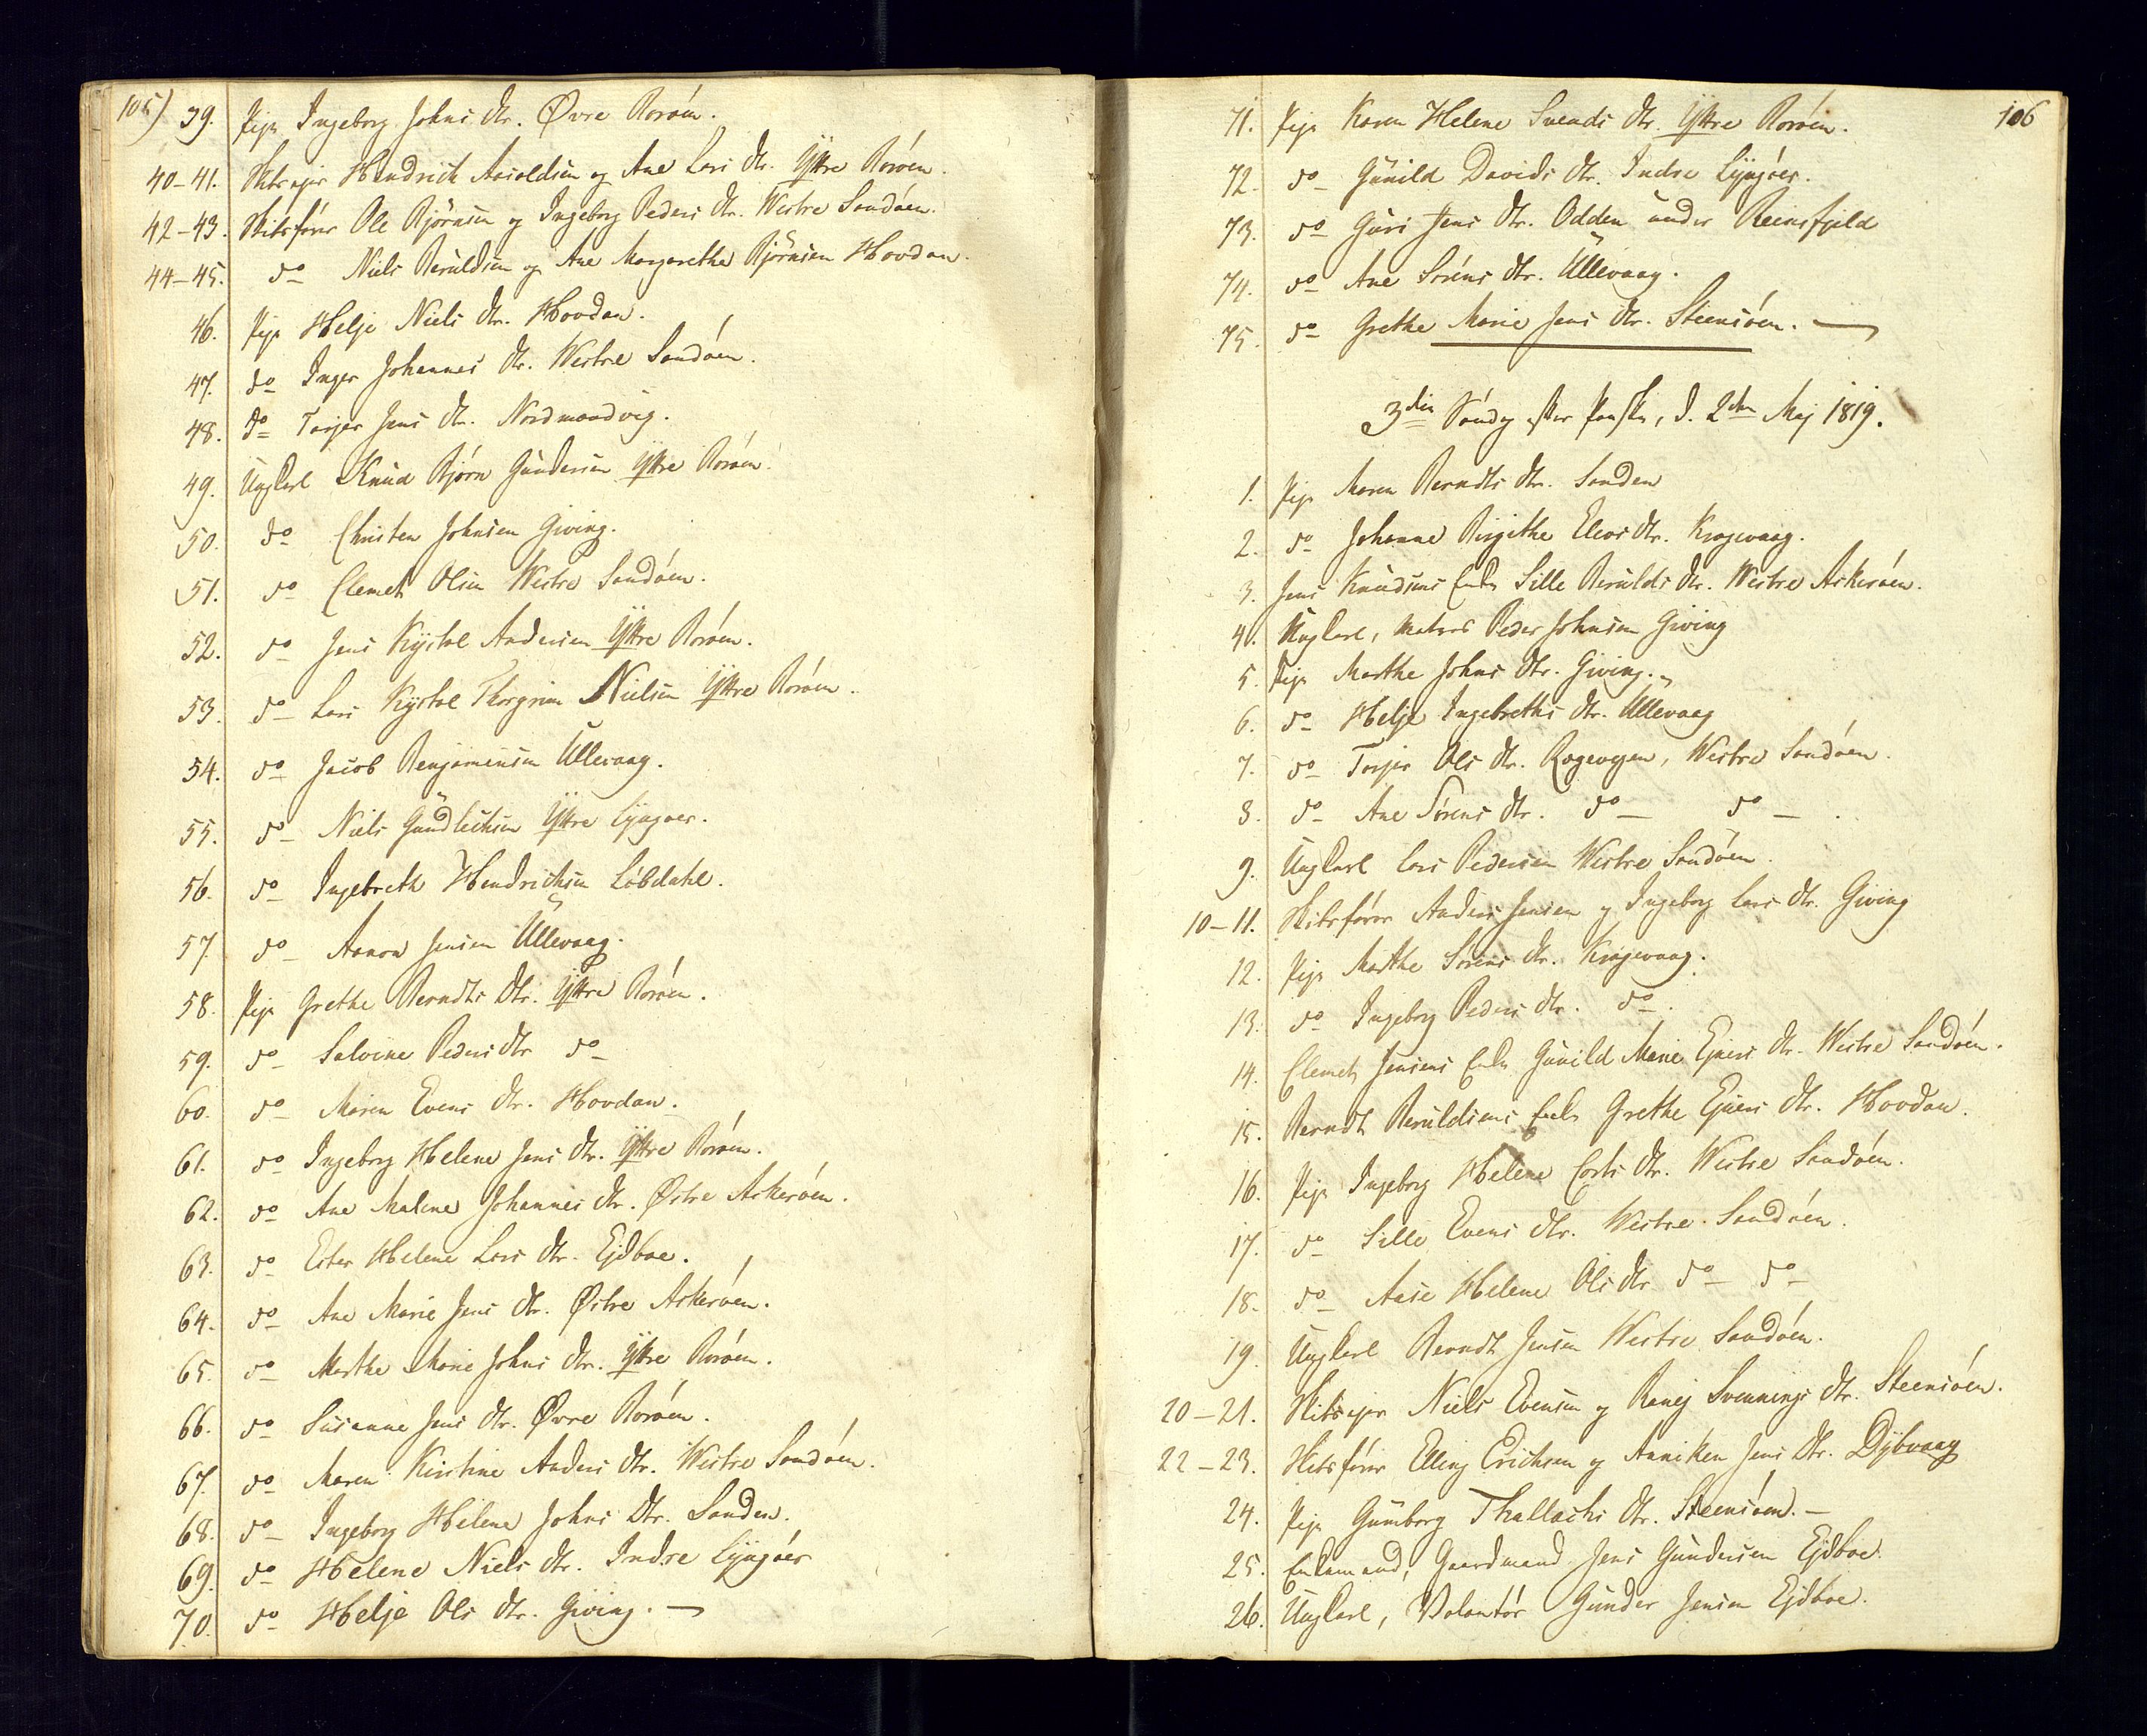 105)
39. Pige Ingeborg Johns dtr. Øvre Boróen.
40-41. Skibsejer Hendrich Aasoldsen og Ane Lars dtr. Ÿttre Boróen.
42-43. Skibsfórer Ole Bjórnsen og Ingeborg Peders dtr. Westre Sandóen.
44-45. do Niels Beruldsen og Ane Margarethe Bjórnsen Hovdan.
46. Pige Helje Niels dtr. Hovdan.
47. do Inger Johannes dtr. Westre Sandóen.
48. do Torjer Jens dtr. Nordmandvig.
49. Ungkarl Knud Bjórn Gundersen Ÿttre Boróen.
50. do Christen Johnsen Giving.
51. do Clemet Olsen Westre Sandóen.
52. do Jens Kijstol Andersen Ÿttre Boróen.
53. do Lars Kijstol Thorgrim Nielsen Ÿttre Boróen.
54. do Jacob Benjaminsen Ullevaag.
55. do Niels Gundlechsen Ÿttre Lÿngoer.
56. do Ingebreth Hendrichsen Lóbdahl.
57. do Aanon Jensen Ullevaag.
58. Pige Grethe Berndts dtr. Ÿttre Boróen.
59. do Salvine Peders dtr do
60. do Maren Evens dtr. Hovdan.
61. do Ingeborg Helene Jens dtr. Ÿttre Boróen.
62. do Ane Malene Johannes dtr. Østre Askeróen.
63. do Ester Helene Lars dtr. Ejdboe.
64. do Ane Marie Jens dtr. Østre Askeróen.
65. do Marthe Marie Johns dtr. Ÿttre Boróen.
66. do Susanne Jens dtr. Øvre Boróen.
67. do Maren Kirstine Anders dtr. Westre Sandóen.
68. do Ingeborg Helene Johns dtr. Sanden.
69. do Helene Niels dtr. Indre Lÿngóer
70. do Helje Ols dtr. Giving. —
106
71. Pige Karen Helene Svends dtr. Ÿttre Boróen.
72. do Gunild Davids dtr. Indre Lÿngóer.
73. do Guri Jens dtr. Odden under Reinsfjeld
74. do Ane Sórens dtr. Ullevaag.
75. do Grethe Marie Jens dtr. Steensóen. —
3die Sóndg efter Paaske, d. 2den Maj 1819.
1. Pige Maren Berndts dtr. Sanden
2. do Johanne Birgithe Elevs dtr. Kragevaag.
3. Jens Knudsens Enke Sille Berulds dtr. Westre Askeróen.
4. Ungkarl, Matros Peder Johnsen Giving
5. Pige Marthe Johns dtr. Giving.
6. do Helje Ingebreths dtr. Ullevaag
7. do Torjer Ols dtr. Rogevogen, Westre Sandóen.
8. do Ane Sórens dtr. do — do — .
9. Ungkarl Lars Pedersen Westre Sandóen.
10-11. Skibsfórer Anders Jensen og Ingeborg Lars dtr. Giving
12. Pige Marthe Sórens dtr. Kragevaag.
13. do Ingeborg Peders dtr. do.
14. Clemet Jensens Enke Gunild Marie Ejners dtr. Westre Sandóen.
15. Berndt Beruldsens Enke Grethe Ejners dtr. Hovdan.
16. Pige Ingeborg Helene Corts dtr. Westre Sandóen.
17. do Sille Evens dtr. Westre Sandóen.
18. do Aase Helene Ols dtr do — do —
19. Ungkarl Berndt Jensen Westre Sandóen.
20-21. Skibsejer Niels Evensen og Ranej Svennings dtr. Steensóen.
22-23. Skibsfórer Elling Erichsen og Anniken Jens dtr. Dÿbvaag
24. Pige Gunborg Thallachs dtr. Steensóen. —
25. Enkemand, Gaardmand Jens Gundersen Ejdboe.
26. Ungkarl, Volontór Gunder Jensen Ejdboe.